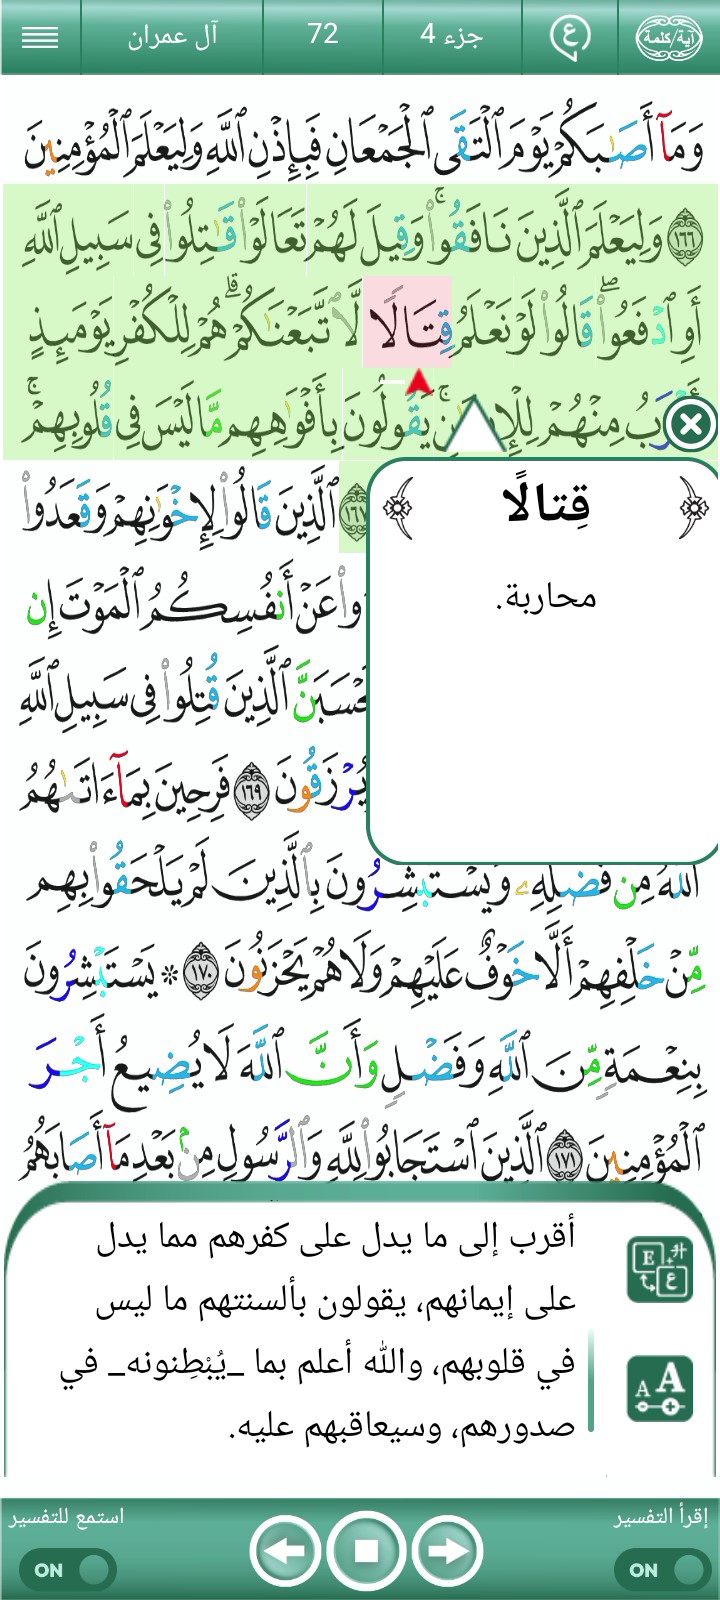 آية/كلمة ع جزء 4 72 آل عمران
وَمَآ أَصَٰبَكُمْ يَوْمَ ٱلْتَقَى ٱلْجَمْعَانِ فَبِإِذْنِ ٱللَّهِ وَلِيَعْلَمَ ٱلْمُؤْمِنِينَ
١٦٦ وَلِيَعْلَمَ ٱلَّذِينَ نَافَقُوا۟ ۚ وَقِيلَ لَهُمْ تَعَالَوْا۟ قَٰتِلُوا۟ فِى سَبِيلِ ٱللَّهِ
أَوِ ٱدْفَعُوا۟ ۖ قَالُوا۟ لَوْ نَعْلَمُ قِتَالًا لَّٱتَّبَعْنَٰكُمْ ۗ هُمْ لِلْكُفْرِ يَوْمَئِذٍ
مِنْهُمْ يَقُولُونَ بِأَفْوَٰهِهِم مَّا لَيْسَ فِى قُلُوبِهِمْ ۚ
١٦٧ ٱلَّذِينَ قَالُوا۟ لِإِخْوَٰنِهِمْ وَقَعَدُوا۟
عَنْ أَنفُسِكُمُ ٱلْمَوْتَ إِن
ٱلَّذِينَ قُتِلُوا۟ فِى سَبِيلِ ٱللَّهِ
يُرْزَقُونَ ١٦٩ فَرِحِينَ بِمَآ ءَاتَىٰهُمُ
ٱللَّهُ مِن فَضْلِهِۦ وَيَسْتَبْشِرُونَ بِٱلَّذِينَ لَمْ يَلْحَقُوا۟ بِهِم
مِّنْ خَلْفِهِمْ أَلَّا خَوْفٌ عَلَيْهِمْ وَلَا هُمْ يَحْزَنُونَ ١٧٠ ۞ يَسْتَبْشِرُونَ
بِنِعْمَةٍ مِّنَ ٱللَّهِ وَفَضْلٍ وَأَنَّ ٱللَّهَ لَا يُضِيعُ أَجْرَ
ٱلْمُؤْمِنِينَ ١٧١ ٱلَّذِينَ ٱسْتَجَابُوا۟ لِلَّهِ وَٱلرَّسُولِ مِنۢ بَعْدِ مَآ أَصَابَهُمُ
قِتالًا
محاربة.
أقرب إلى ما يدل على كفرهم مما يدل
على إيمانهم، يقولون بألسنتهم ما ليس
في قلوبهم، والله أعلم بما _يُبْطِنونه_ في
صدورهم، وسيعاقبهم عليه.
إقرأ التفسير استمع للتفسير
ON ON